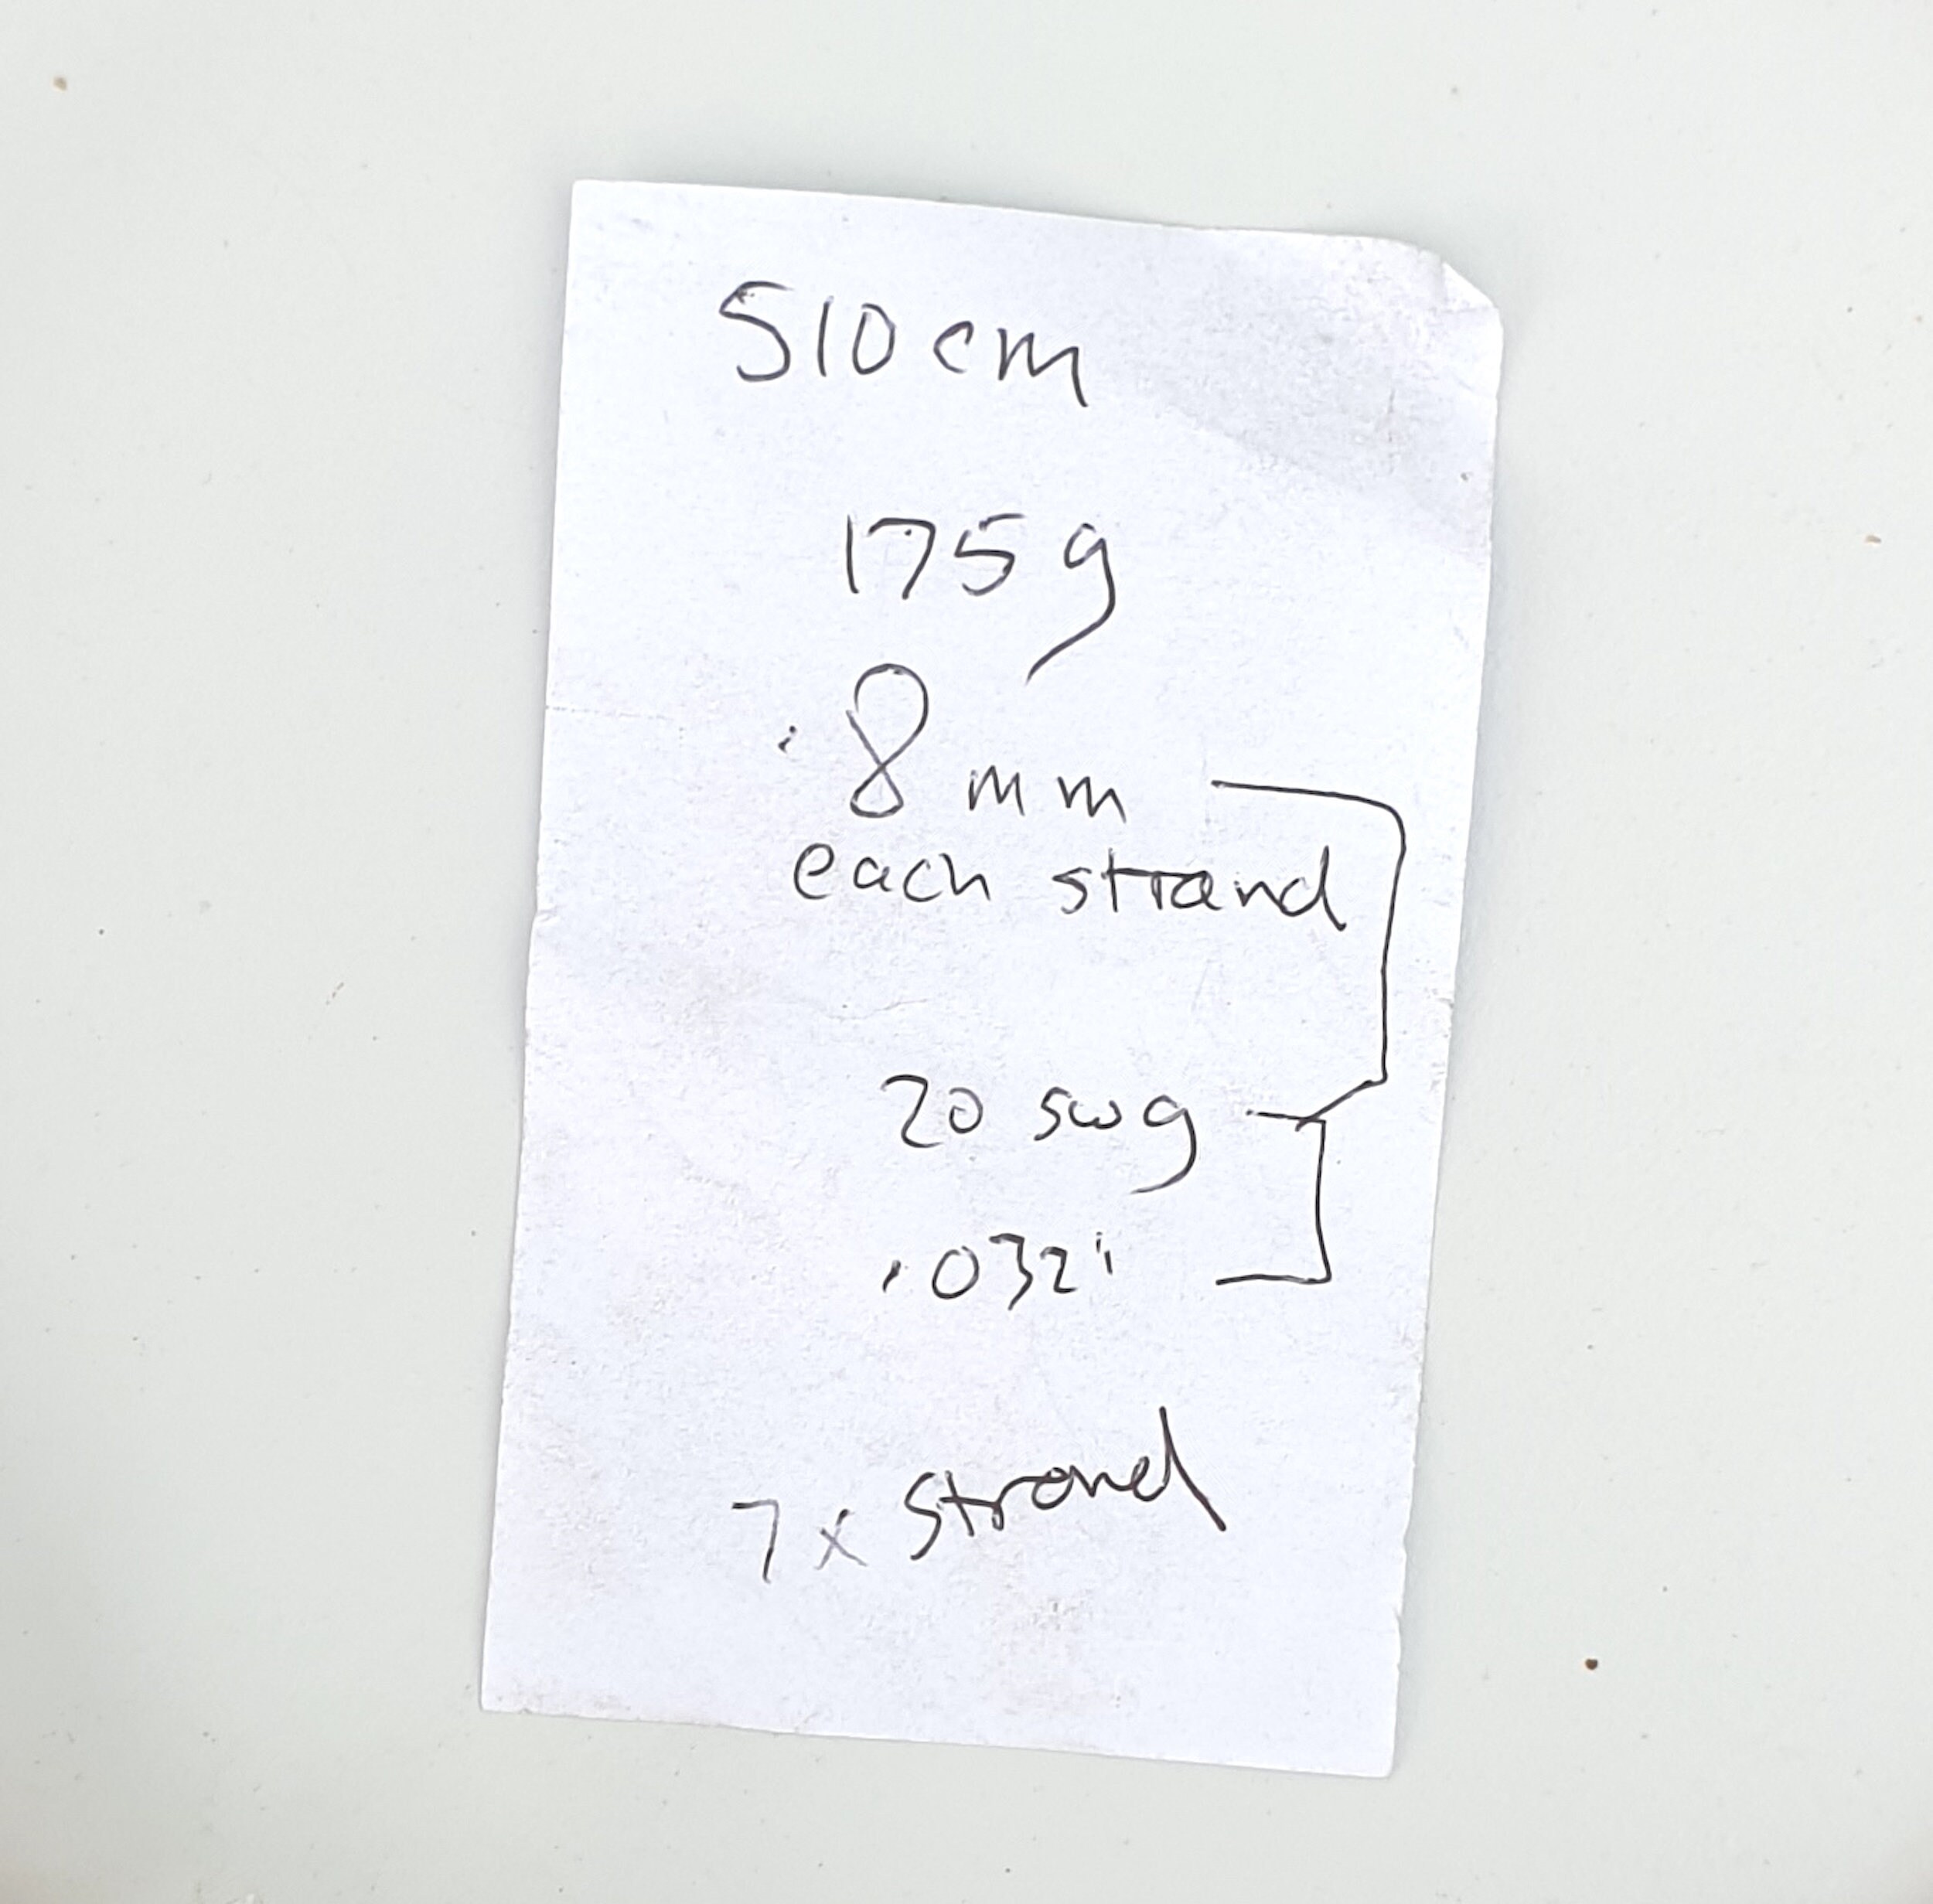 510 cm
175 g
.8 mm
each strand
20 swg
.032"
7 x strand